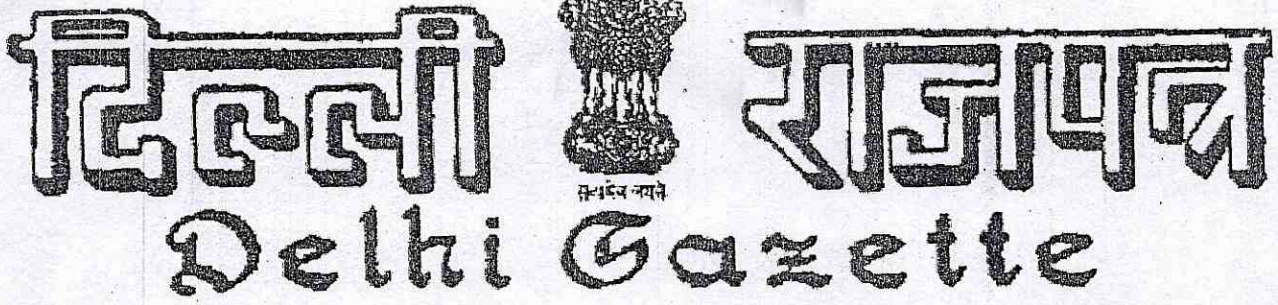 दिल्ली राजपत्र
सत्यमेव जयते
Delhi Gazette